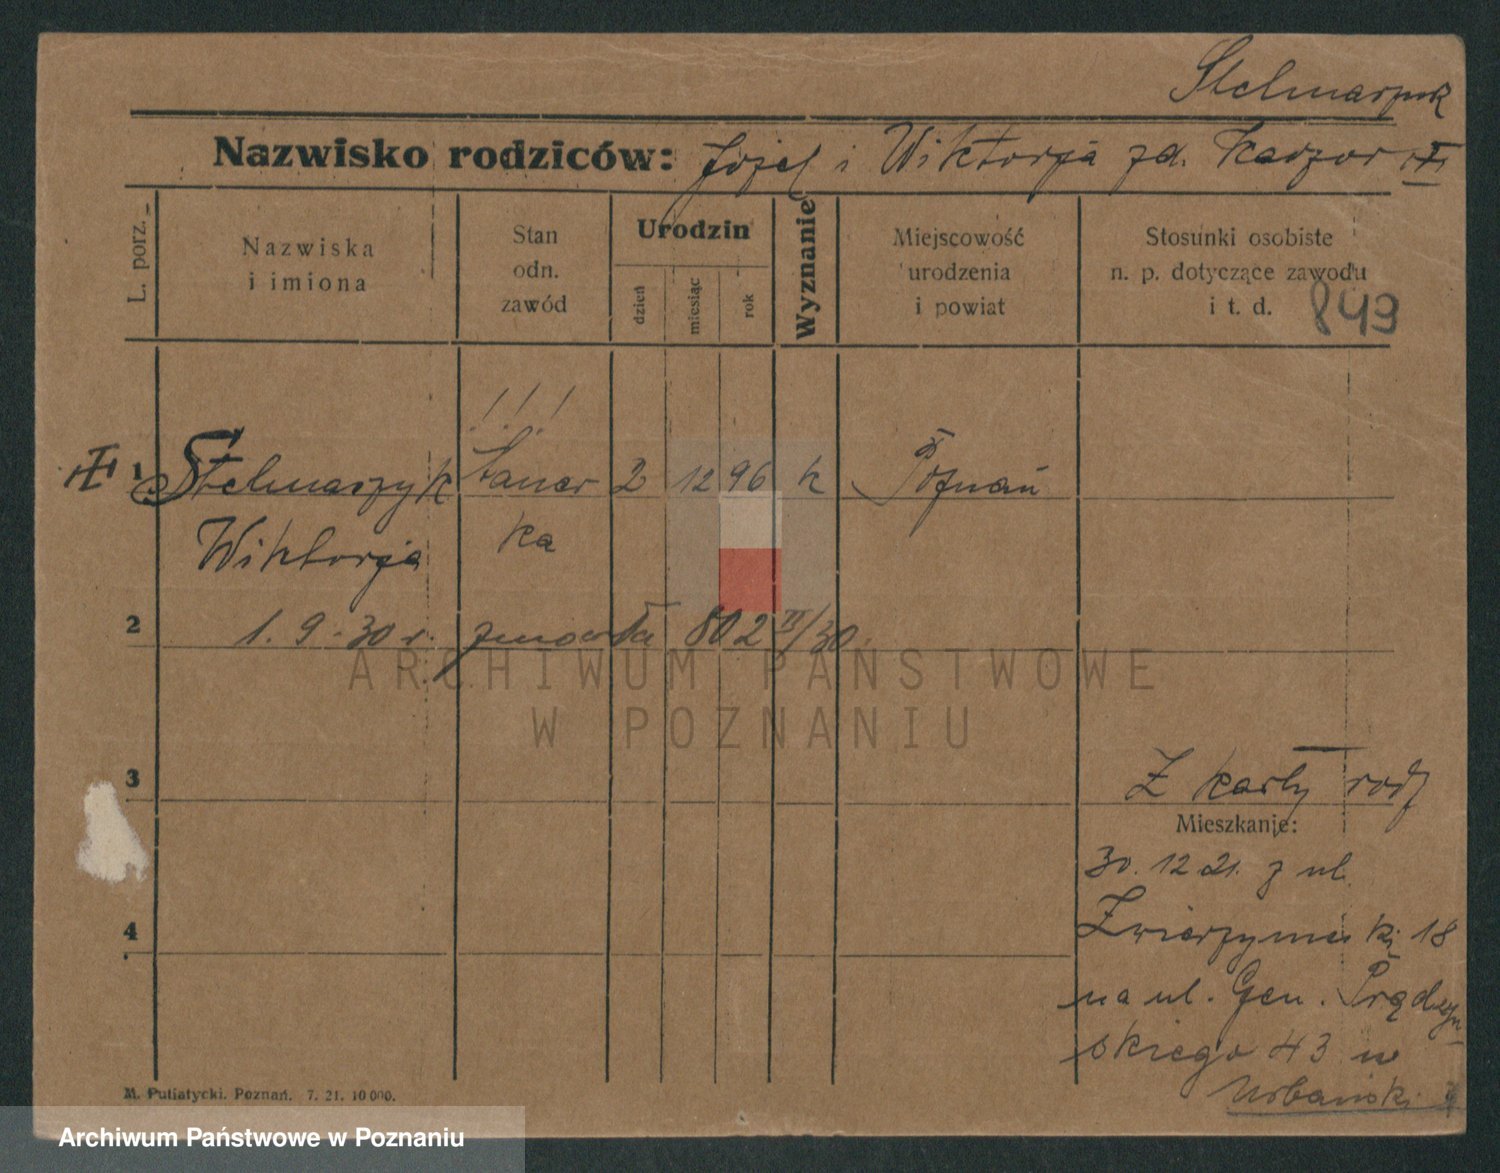 Stelmaszyk
Nazwisko rodziców: Józef i Wiktorja zd. Kaczor
L. porz.
Nazwiska
i imiona
Stan
odn.
zawód
Urodzin
dzień
miesiąc
rok
Wyznanie
Miejscowość
urodzenia
i powiat
Stosunki osobiste
n. p. dotyczące zawodu
i t. d.
843
1 Stelmaszyk 2 12 96 k Poznań
Wiktorja ka
2 1. 9. 30 r. zmarła 802 /30.
ARCHIWUM PAŃSTWOWE
W POZNANIU
3
Z karty rodz
Mieszkanie:
30. 12 21. z ul.
Zwierzyniecki 18
4
na ul. Gen. Prądzyń-
skiego 43 u
Urbański
M. Putiatycki. Poznań. 7. 21. 10 000.
Archiwum Państwowe w Poznaniu